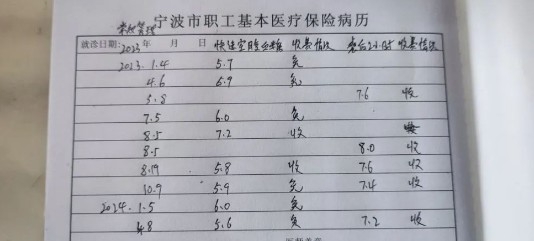 宁波市职工基本医疗保险病历
就诊日期: 2023 年 月 日 快速空腹血糖 收费情况 餐后2小时 收费情况
2023.1.4 5.7 免
4.6 6.9 免
5.8 7.6 收
7.5 6.0 免
8.5 7.2 收
8.5 8.0 收
8.19 5.8 收 7.6 收
10.9 5.9 免 7.4 收
2024.1.5 6.0 免
4.8 5.6 免 7.2 收